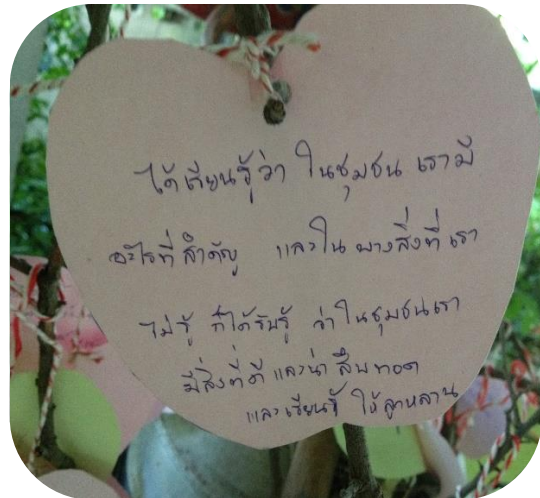 ได้เรียนรู้ว่า ในชุมชน เรามี
อะไรที่สำคัญ และใน บางสิ่งที่ เรา
ไม่รู้ ก็ได้รับรู้ ว่าในชุมชนเรา
มีสิ่งที่ดี และน่า สืบทอด
และเรียนรู้ ให้ลูกหลาน